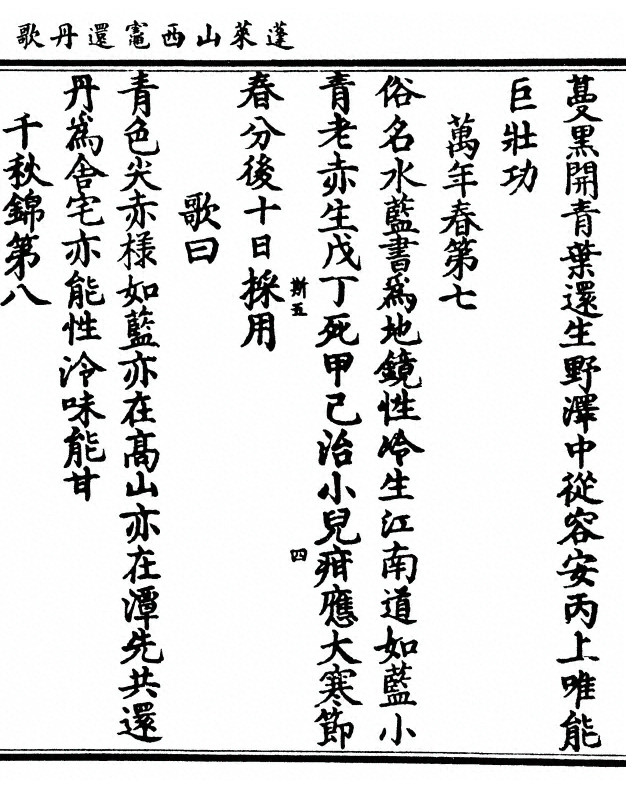 蓬萊山西竈還丹歌
蔓黒開青葉還生野澤中從容安丙上唯能
巨壯功
萬年春第七
俗名水藍書爲地鏡性冷生江南道如藍小
青老赤生戊丁死甲己治小兒疳應大寒節
斯五
四
春分後十日採用
歌曰
青色尖赤樣如藍亦在髙山亦在潭先共還
丹爲舍宅亦能性冷味能甘
千秋錦第八